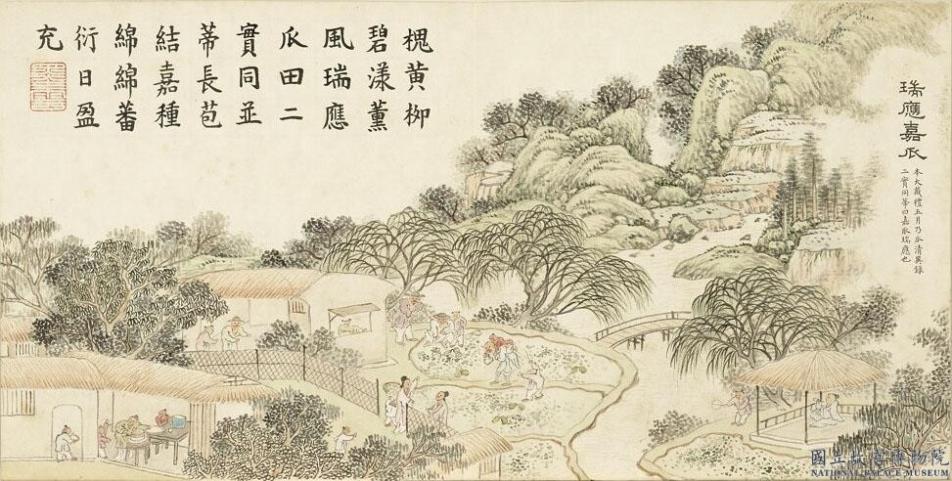 瑞應嘉瓜
本大戴禮五月乃瓜清異錄
二實同蒂曰嘉瓜瑞應也
槐黃柳
碧漾薰
風瑞應
瓜田二
實同並
蒂長苞
結嘉種
綿綿蕃
衍日盈
充
國立故宮博物院
NATIONAL PALACE MUSEUM